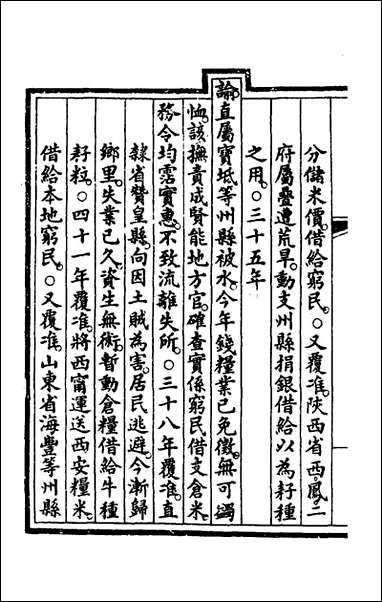 分儲米價。借給窮民。○又覆准。陝西省西。鳳。二
府屬疊遭荒旱。動支州縣捐銀借給以為耔種
之用。○三十五年
諭直屬寶坻等州縣被水。今年錢糧業已免徵。無可蠲
恤。該撫責成賢能地方官。確查實係窮民借支倉米。
務令均霑實惠。不致流離失所。○三十八年覆准。直
隸省贊皇縣。向因土賊為害。居民逃避。今漸歸
鄉里。失業已久。資生無術。暫動倉糧借給牛種
耔粒。○四十一年覆准。將西甯運送西安糧米。
借給本地窮民。○又覆准。山東省海豐等州縣